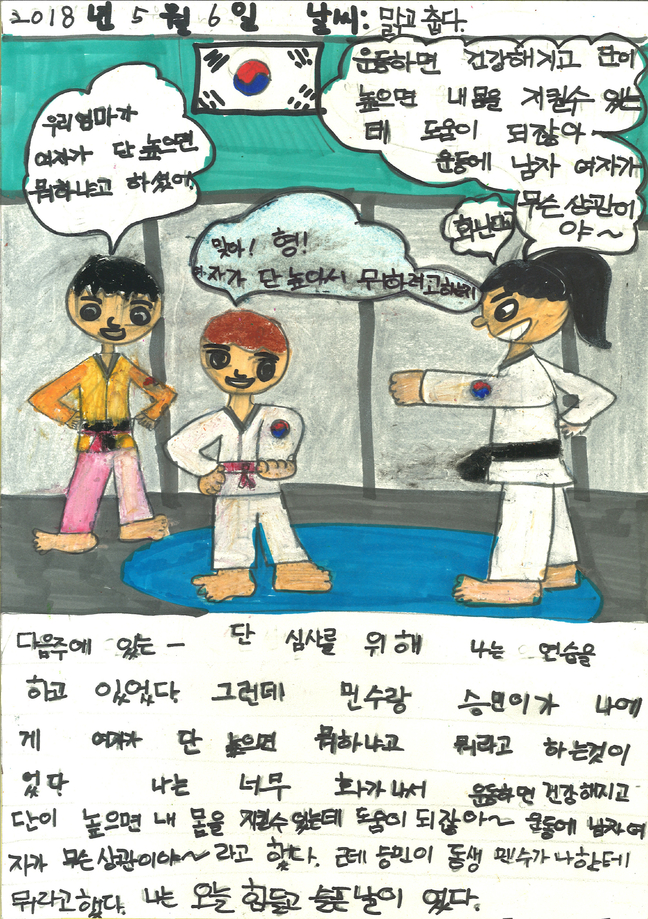 2018 년 5 월 6 일 날씨: 맑고 춥다.
우리 엄마가
여자가 단 높으면
뭐하냐고 하셨어.
운동하면 건강해지고 단이
높으면 내 몸을 지킬수 있는
데 도움이 되잖아~
운동에 남자 여자가
무슨 상관이
야~
화난다
맞아! 형!
여자가 단 높아서 뭐하려고 하는지
다음주에 있는 一 단 심사를 위해 나는 연습을
하고 있었다. 그런데 민수랑 승민이가 나에
게 여자가 단 높으면 뭐하냐고 뭐라고 하는것이
었다 나는 너무 화가나서 운동하면 건강해지고
단이 높으면 내 몸을 지킬수 있는데 도움이 되잖아~ 운동에 남자 여
자가 무슨 상관이야~ 라고 했다. 근데 승민이 동생 민수가 나한테
뭐라고 했다. 나는 오늘 힘들고 슬픈 날이 였다.